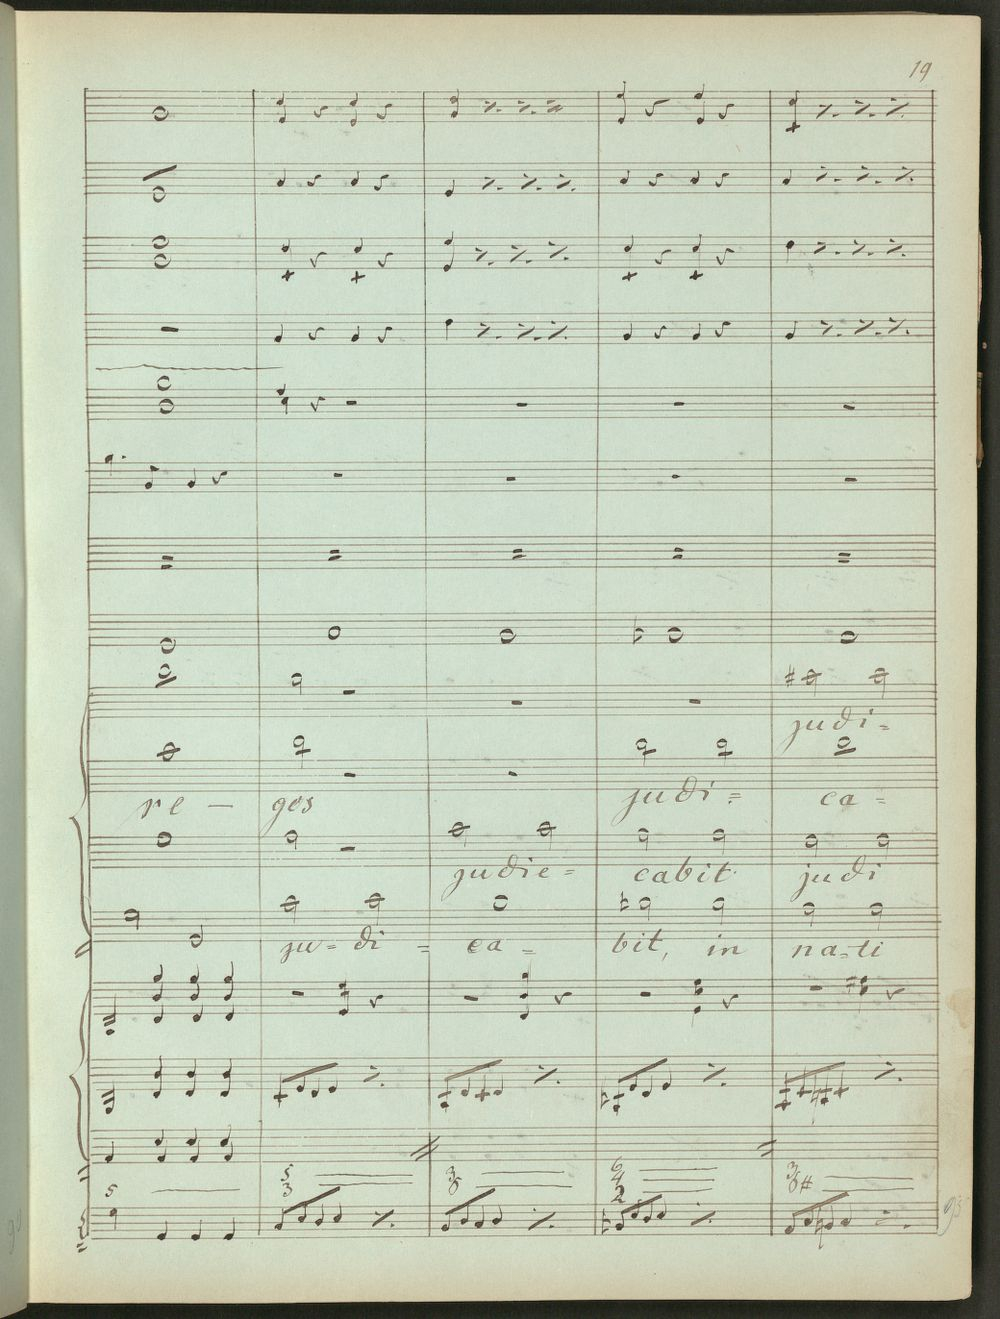 19
judi=
re — gos
judi= ca=
judic= cabit judi
ju=di= ca= bit, in na=ti
5
5
3
3
8
6
4
2
3
8#
95